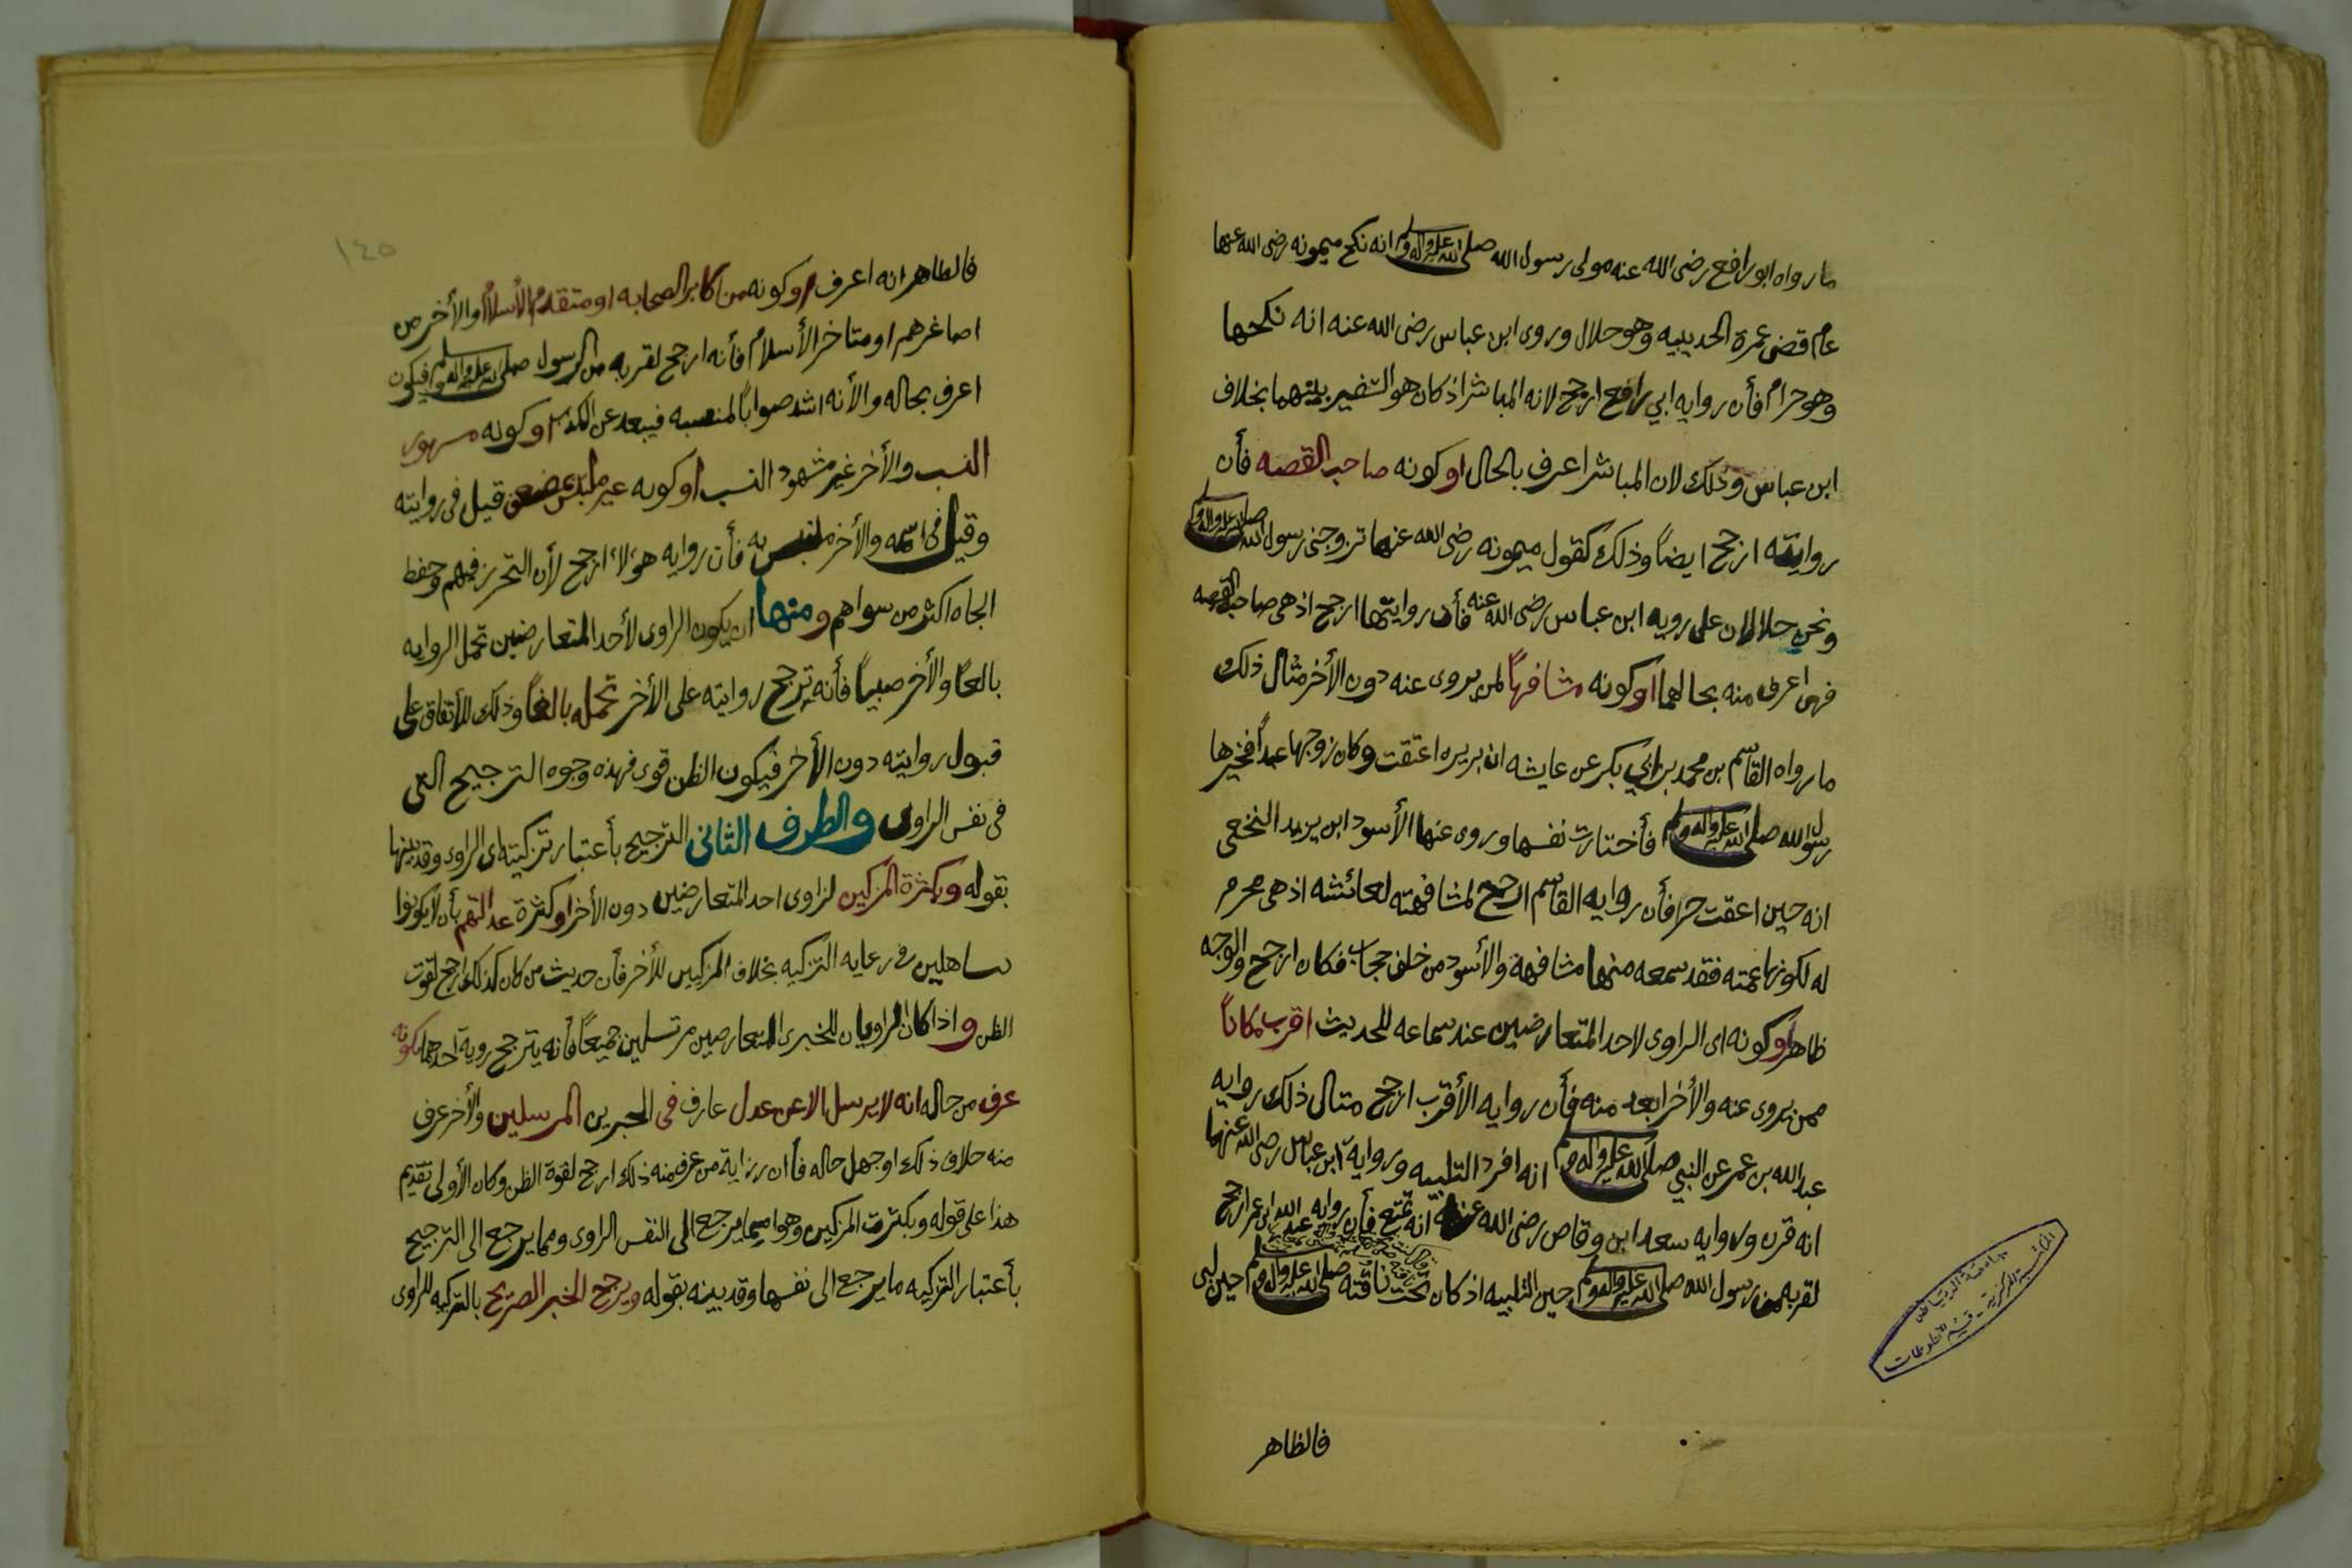 ما رواه ابو رافع رضى الله عنه مولى رسول الله صلى الله عليه واله وسلم انه نكح ميمونه رضى الله عنها
عام قضى عمرة الحديبيه وهو حلال وروى ابن عباس رضى الله عنه انه نكحها
وهو حرام فأن روايه ابي رافع ارجح لانه المباشر اذ كان هو السفير بينهما بخلاف
ابن عباس وذلك لان المباشر اعرف بالحال او كونه صاحب القصه فأن
روايته ارجح ايضاً وذلك كقول ميمونه رضى الله عنها تزوجنى رسول الله صلى الله عليه واله وسلم
ونحن حلالان على رويه ابن عباس رضى الله عنه فأن روايتها ارجح اذ هى صاحبة القصه
فهى اعرف منه بحالهما او كونه مشافهاً لمن يروى عنه دون الأخر مثال ذلك
ما رواه القاسم بن محمد بن ابي بكر عن عايشه ان بريره اعتقت وكان زوجها عبداً فخيرها
رسول الله صلى الله عليه واله وسلم فأختارت نفسها وروى عنها الأسود ابن يزيد النخعى
انه حين اعقت حر فأن روايه القاسم ارجح لمشافهته لعائشه اذ هى محرم
له لكونها عمته فقد سمعه منها مشافهة والأسود من خلف حجاب فكان ارجح والوجه
ظاهر او كونه اى الراوى لاحد المتعارضين عند سماعه للحديث اقرب مكاناً
ممن يروى عنه والأخر ابعد منه فأن روايه الأقرب ارجح مثال ذلك روايه
عبد الله بن عمر عن النبي صلى الله عليه واله وسلم انه افرد التلبيه ورواية ابن عباس رضى الله عنهما
انه قرن وروايه سعد ابن وقاص رضى الله عنه انه تمتع فأن روايه عبد الله ابن عمر ارجح
لقربه من رسول الله صلى الله عليه واله وسلم حين التلبيه اذ كان تحت ناقته صلى الله عليه واله وسلم حين لبى
فالظاهر
جامعة الرياض
المكتبة المركزية - قسم المخطوطات
١٤٥
فالظاهر انه اعرف او كونه من اكابر الصحابه او متقدم الأسلام والأخر من
اصاغرهم او متاخر الأسلام فأنه ارجح لقربه من الرسول صلى الله عليه واله وسلم فيكون
اعرف بحاله والأنه اشد صواباً لمنصبه فيبعد عن الكذب او كونه مشهور
النسب والأخر غير مشهود النسب او كونه غير ملتبس بمضعف قيل فى روايته
وقيل فى اسمه والأخر ملتبس به فأن روايه هؤلاء ارجح لأن التحرز فيهم وحفظ
الجاه اكثر من سواهم ومنها ان يكون الراوى لأحد المتعارضين تحمل الروايه
بالغاً والأخر صبياً فأنه ترجح روايته على الأخر تحمله بالغاً وذلك للأتفاق على
قبول روايته دون الأخر فيكون الظن قوى فهذه وجوه الترجيح التى
فى نفس الراوى والطرف الثانى الترجيح بأعتبار تزكيته اى الراوى وقد بينها
بقوله وبكثرة المزكين لراوى احد المتعارضين دون الأخر او كثرة عدالتهم بأن لا يكونوا
ساهلين فى رعايه التزكيه بخلاف المزكيين للأخر فأن حديث من كان كذلك ارجح لقوت
الظن واذا كان الراويان للخبرى المتعارضين مرتسلين جميعاً فأنه يترجح روية احدهما لكونه
عرف من حاله انه لا يرسل الا عن عدل عارف فى الخبرين المرسلين والأخر عرف
منه خلاف ذلك او جهل حاله فأن رزاية من عرف منه ذلك ارجح لقوة الظن وكان الأولى تقديم
هذا على قوله وبكثرت المزكين وهو مما يرجع الى النفس الراوى ومما يرجع الى الترجيح
بأعتبار التزكيه ما يرجع الى نفسها وقد بينه بقوله ويرجح الخبر الصريح بالتزكيه للراوى